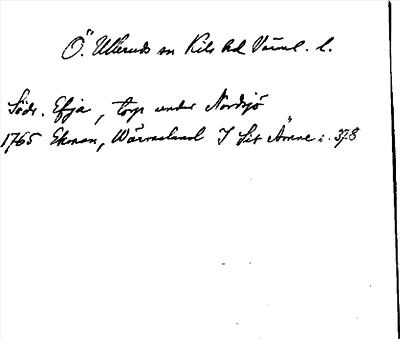 Ö. Ullerud sn Kils hd Värml. l.
Södr. Efja, torp under Nordsjö
1765 Ekman, Wärmeland I Sit Ämne s. 378